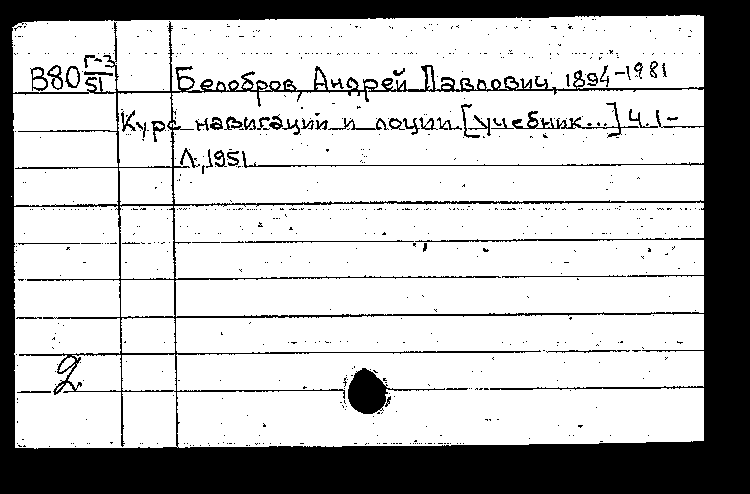 В80 Г-3/51 Белобров, Андрей Павлович, 1894-1981
Курс навигации и лоции [учебник...] Ч. 1-
Л., 1951.
2